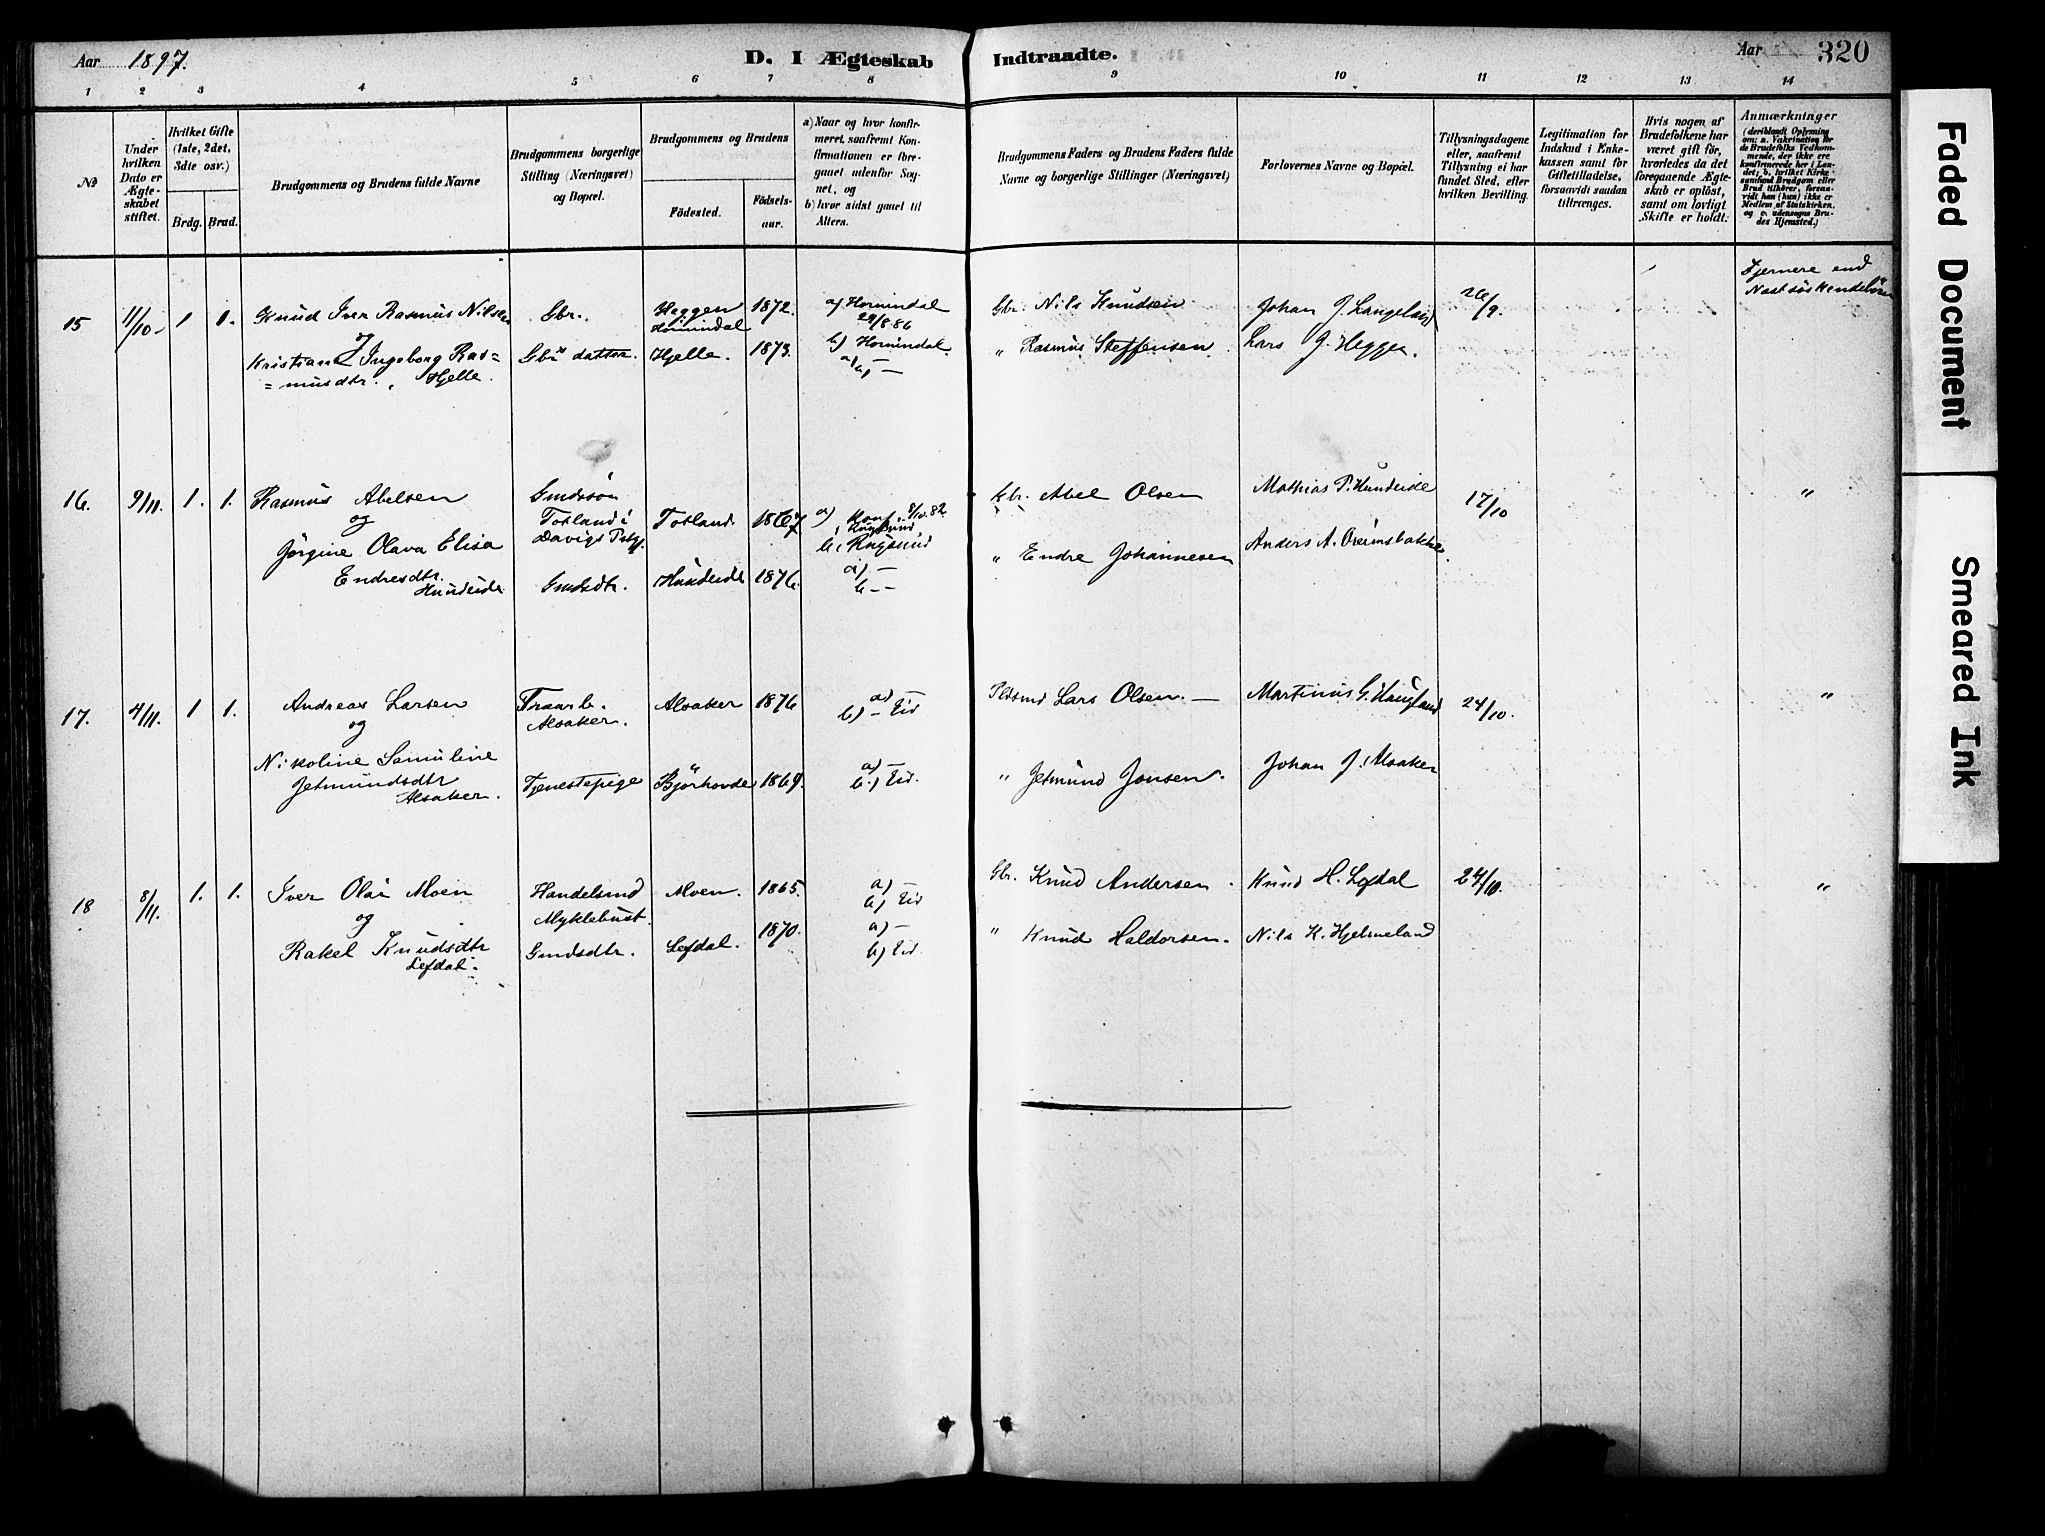 Aar 1897.
D. I Ægteskab Indtraadte.
Aar 320
1 2 3 4 5 6 7 8 9 10 11 12 13 14
№
Under hvilken Dato er Ægteskabet stiftet.
Hvilket Gifte (1ste, 2det, 3die osv.)
Brdg. Brud.
Brudgommens og Brudens fulde Navne
Brudgommens borgerlige Stilling (Næringsvei) og Bopæl.
Brudgommens og Brudens
Fødested.
Fødselsaar.
a) Naar og hvor konfirmeret, saafremt Konfirmationen er foregaaet udenfor Sognet, og
b) hvor sidst gaaet til Alters.
Brudgommens Faders og Brudens Faders fulde Navne og borgerlige Stillinger (Næringsvei)
Forlovernes Navne og Bopæl.
Tillysningsdagene eller, saafremt Tillysning ei har fundet Sted, efter hvilken Bevilling.
Legitimation for Indskud i Enkekassen samt for Giftetilladelse, forsaavidt saadan tiltrænges.
Hvis nogen af Brudefolkene har været gift før, hvorledes da det foregaaende Ægteskab er opløst, samt om lovligt Skifte er holdt.
Anmærkninger
(deriblandt Oplysning om: a. Vakcination for de Brudefolks Vedkommende, der ikke ere konfirmerede her i Landet; b. hvilket Kirkesamfund Brudgom eller Brud tilhører, forsaavidt han (hun) ikke er Medlem af Statskirken, og c. udensogns Brudes Hjemsted.)
15 11/10 1 1. Knud Iver Rasmus Nilsen Gbr. Heggen Hornindal 1872. a) Hornindal 29/8.86 Gbr. Nils Knudsen Johan J. Langeland 26/9. Fjernere end Næstsøskendebørn
og
Kristiane Ingeborg Ras= Gbr datter Hjelle. 1873. b) Hornindal. " Rasmus Steffensen Lars J. Heggen.
=musdtr. Hjelle. a) b) —
16. 9/11. 1. 1. Rasmus Abelsen Gmdssøn Gbr. Abel Olsen Mathias P. Hundeide 17/10 "
og Totland i Davigs Totland. 1867 a) Konf. 8/10.82. Rugsund
Jørgine Olava Elisa b, Rugsund " Endre Johannesen Anders A.
Endresdtr. Hundeide Gmdsdtr. Hundeide 1876. a) — b —
17. 4/11. 1 1. Andreas Larsen Alsaker. Alsaker 1876 a) — b) — Eid Lars Olsen. — Martinus G. Haugland 24/10. "
og
Nikoline Samuline
Jetmundsdtr Alsaker. Tjenestepige Bjørhovde 1869. a) — b) Eid. " Jetmund Jonsen. Johan J. Alsaker
18 8/11. 1. 1. Iver Olai Moen Handelsmd Myklebust Moen. 1865. a) — b) Eid Gbr. Knud Andersen. Knud H. Lefdal 24/10. "
og
Rakel Knudsdtr Lefdal. Gmdsdtr. Lefdal. 1870. a) — b) Eid. " Knud Haldorsen. Nils K. Hjelmeland
Faded Document
Smeared Ink